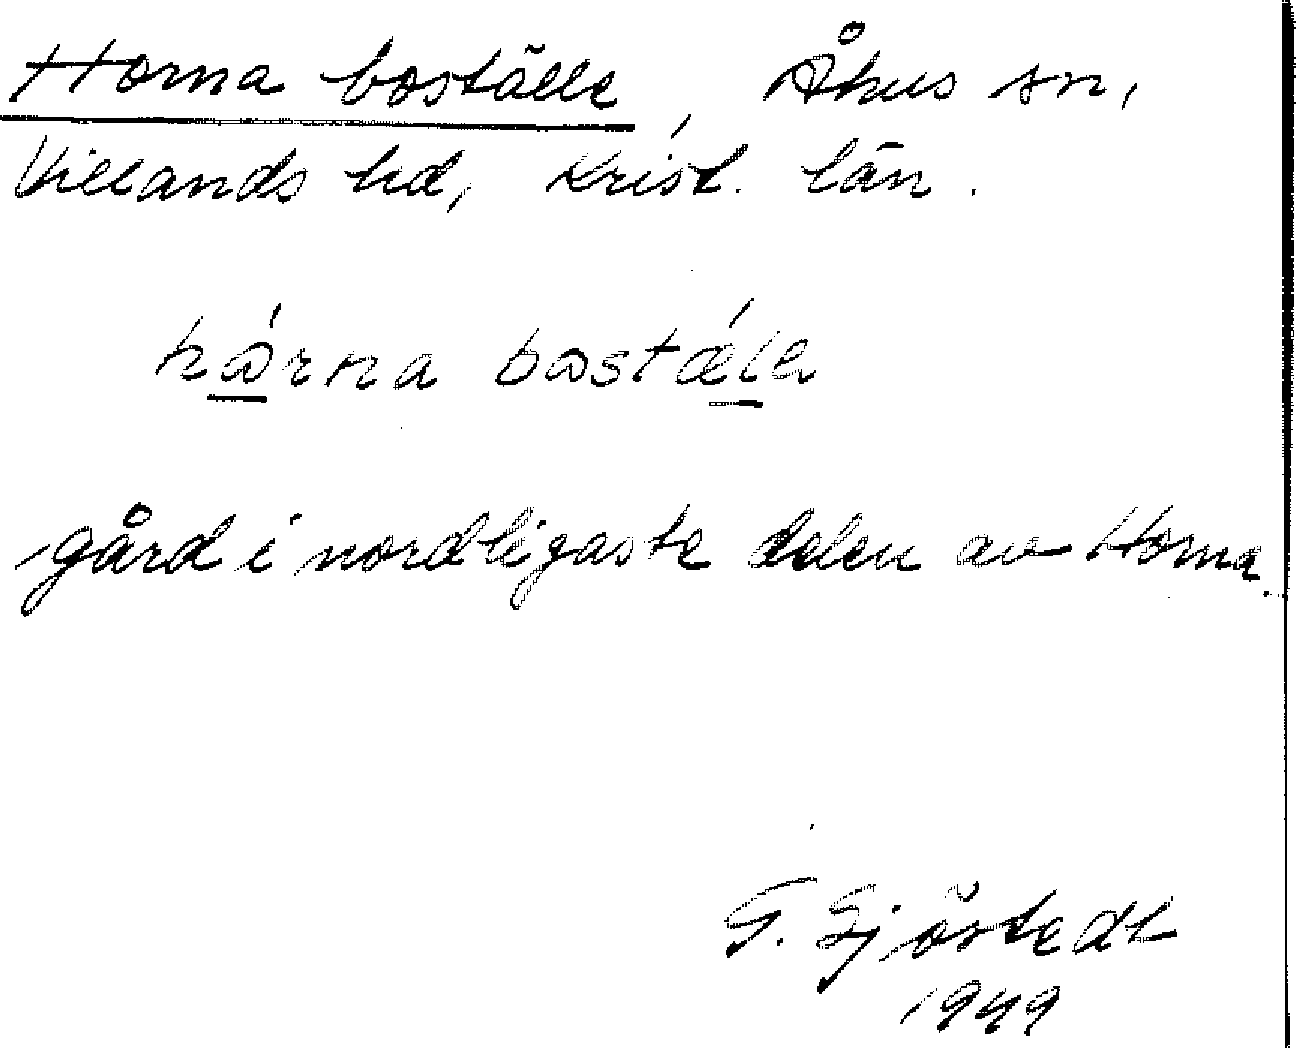 Horna boställe, Åhus sn,
Villands hd, Krist. län.
hɷ́rna bɷstǽle
gård i nordligaste delen av Horna.
G. Sjöstedt
1949